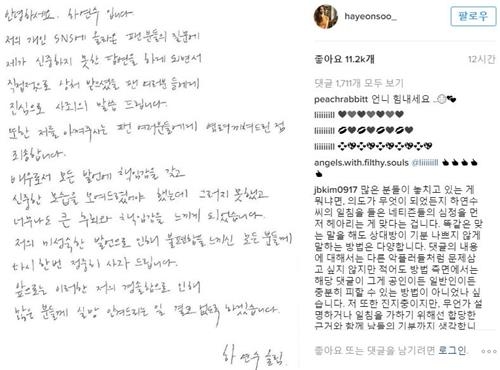 안녕하세요. 하연수 입니다
저의 개인 SNS에 올라온 팬분들의 질문에
제가 신중하지 못한 답변을 하게 되면서
직접적으로 상처 받으셨을 팬 여러분들에게
진심으로 사죄의 말씀 드립니다.
또한 저를 아껴주시는 팬 여러분들에게 심려끼쳐드린 점
죄송합니다.
배우로서 모든 발언에 책임감을 갖고
신중한 모습을 보여드렸어야 했는데 그러지 못했고
너무나도 큰 후회와 책임감을 느끼게 되었습니다.
저의 미성숙한 발언으로 인해 불편함을 느끼신 모든 분들께
다시 한번 정중히 사과 드립니다.
앞으로는 이러한 저의 경솔함으로 인해
많은 분들께 실망 안겨드리는 일 결코 없도록 하겠습니다.
하연수 올림
hayeonsoo_
팔로우
좋아요 11.2k개
12시간
댓글 1,711개 모두 보기
peachrabbitt 언니 힘내세요 ..
liiiiiiill
liiiiiiill
liiiiiiill
angels.with.filthy.souls @liiiiiiill
jbkim0917 많은 분들이 놓치고 있는 게
뭐냐면, 의도가 무엇이 되었든지 하연수
씨의 일침을 들은 네티즌들의 심정을 먼
저 헤아리는 게 맞다는 겁니다. 똑같은 맞
는 말을 해도 상대방이 기분 나쁘지 않게
말하는 방법은 다양합니다. 댓글의 내용
에 대해서는 다른 악플러들처럼 문제삼
고 싶지 않지만 적어도 방법 측면에서는
해당 댓글이 그게 공인이든 일반인이든
충분히 피할 수 있는 방법이 아니었나 싶
습니다. 또 하한 진지충이지만, 무언가 설
명하거나 일침을 가하기 위해선 합당한
근거와 함께 남들의 기분까지 생각합니
좋아요 또는 댓글을 남기려면 로그인.